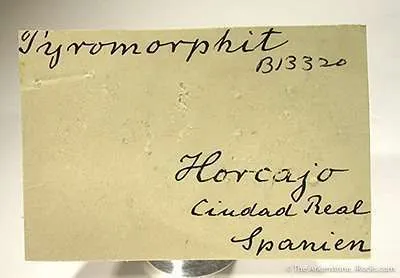 Pyromorphit
B13320
Horcajo
Ciudad Real
Spanien
© The Arkenstone, iRocks.com